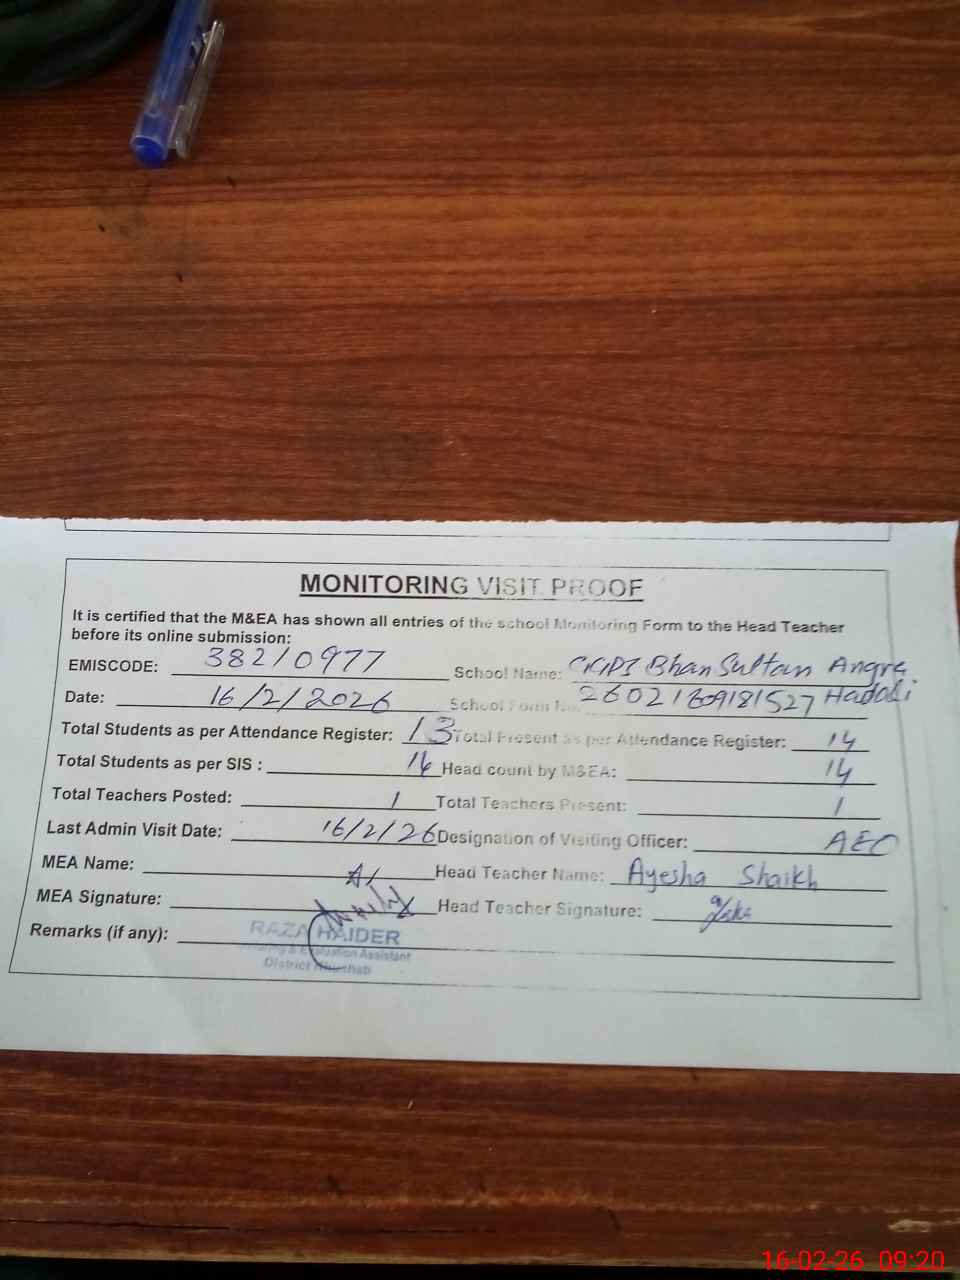 MONITORING VISIT PROOF
It is certified that the M&EA has shown all entries of the school Monitoring Form to the Head Teacher
before its online submission:
EMISCODE: 38210977 School Name: GGPS Bhan Sultan Angra Hadali
Date: 16/2/2026 School Form No. 26021609181527
Total Students as per Attendance Register: 13 Total Present as per Attendance Register: 14
Total Students as per SIS : 14 Head count by M&EA: 14
Total Teachers Posted: 1 Total Teachers Present: 1
Last Admin Visit Date: 16/2/26 Designation of Visiting Officer: AEO
MEA Name: Head Teacher Name: Ayesha Shaikh
MEA Signature: Head Teacher Signature:
Remarks (if any):
RAZA HAIDER
Monitoring & Evaluation Assistant
District Khushab
16-02-26 09:20